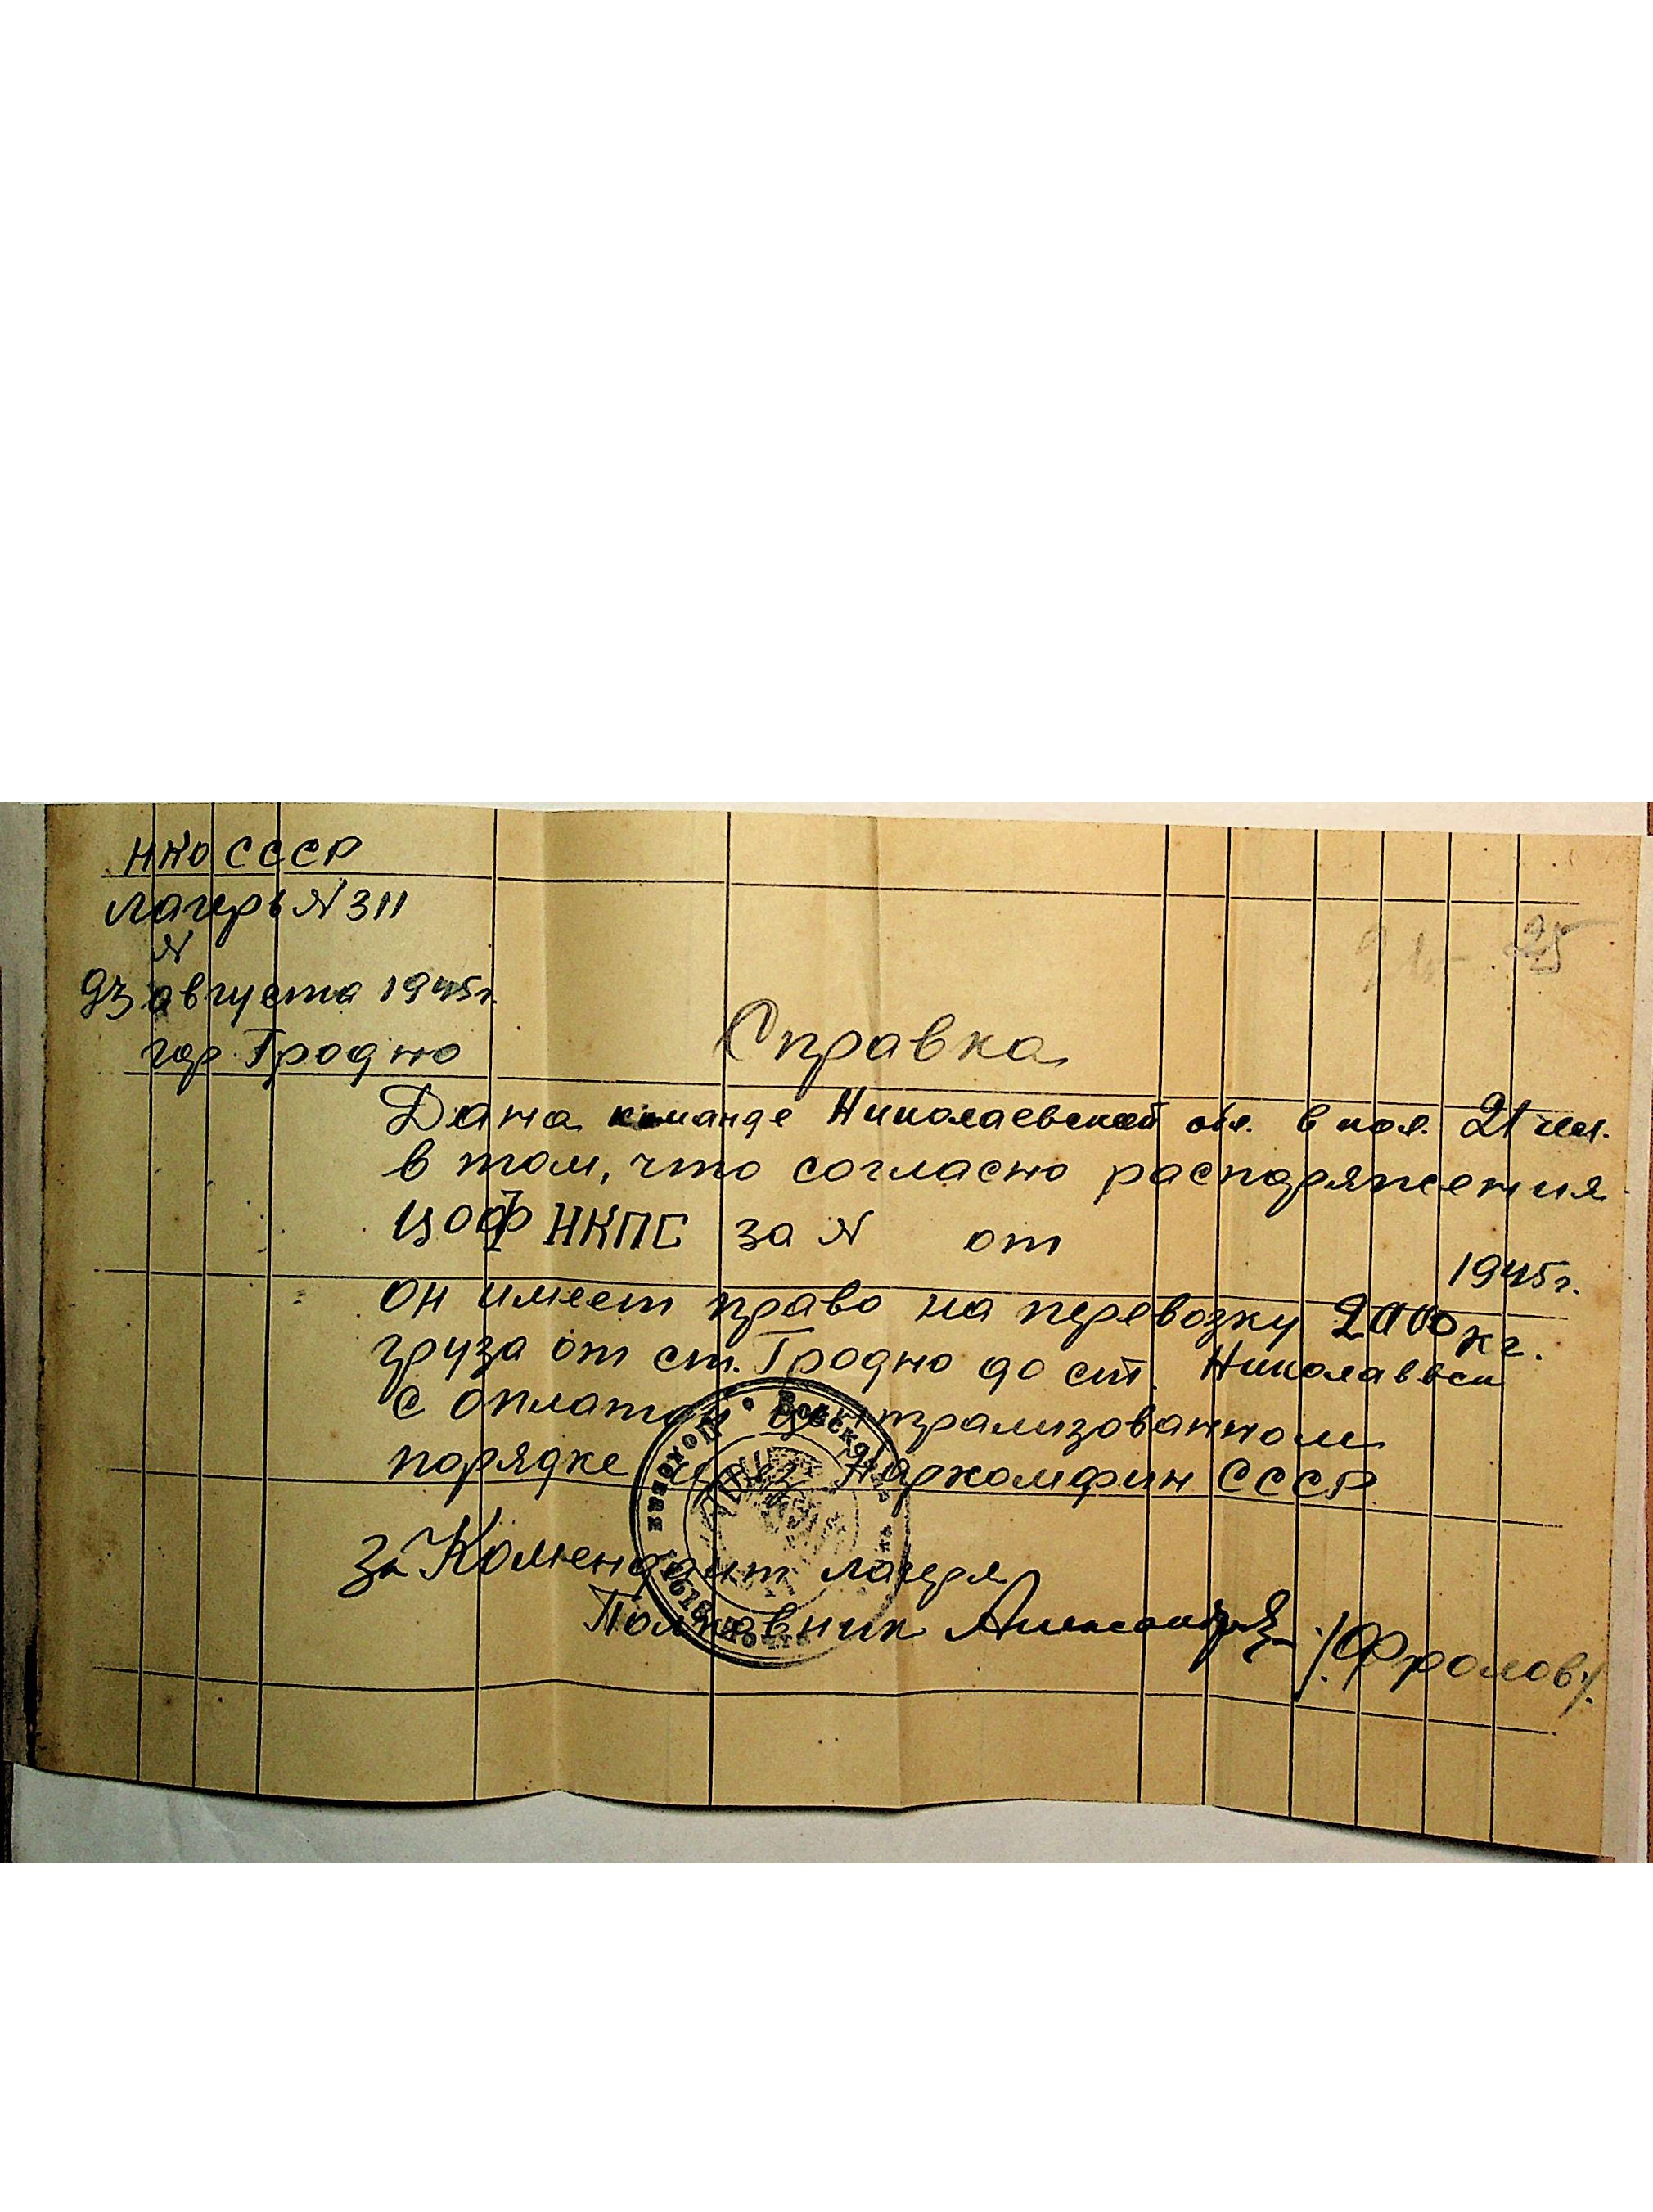 НКО СССР
лагерь № 311
№
23 августа 1945г.
гор. Гродно
Справка
Дана команде Николаевской обл. в кол. 21 чел.
в том, что согласно распоряжения
ЦОФ НКПС за № от
1945г.
он имеет право на перевозку 2000 кг.
груза от ст. Гродно до ст. Николаевск
с оплатой централизованном
порядке через Наркомфин СССР
За Комендант лагеря
Полковник
/Фролов/.
Войсковая
Полевая